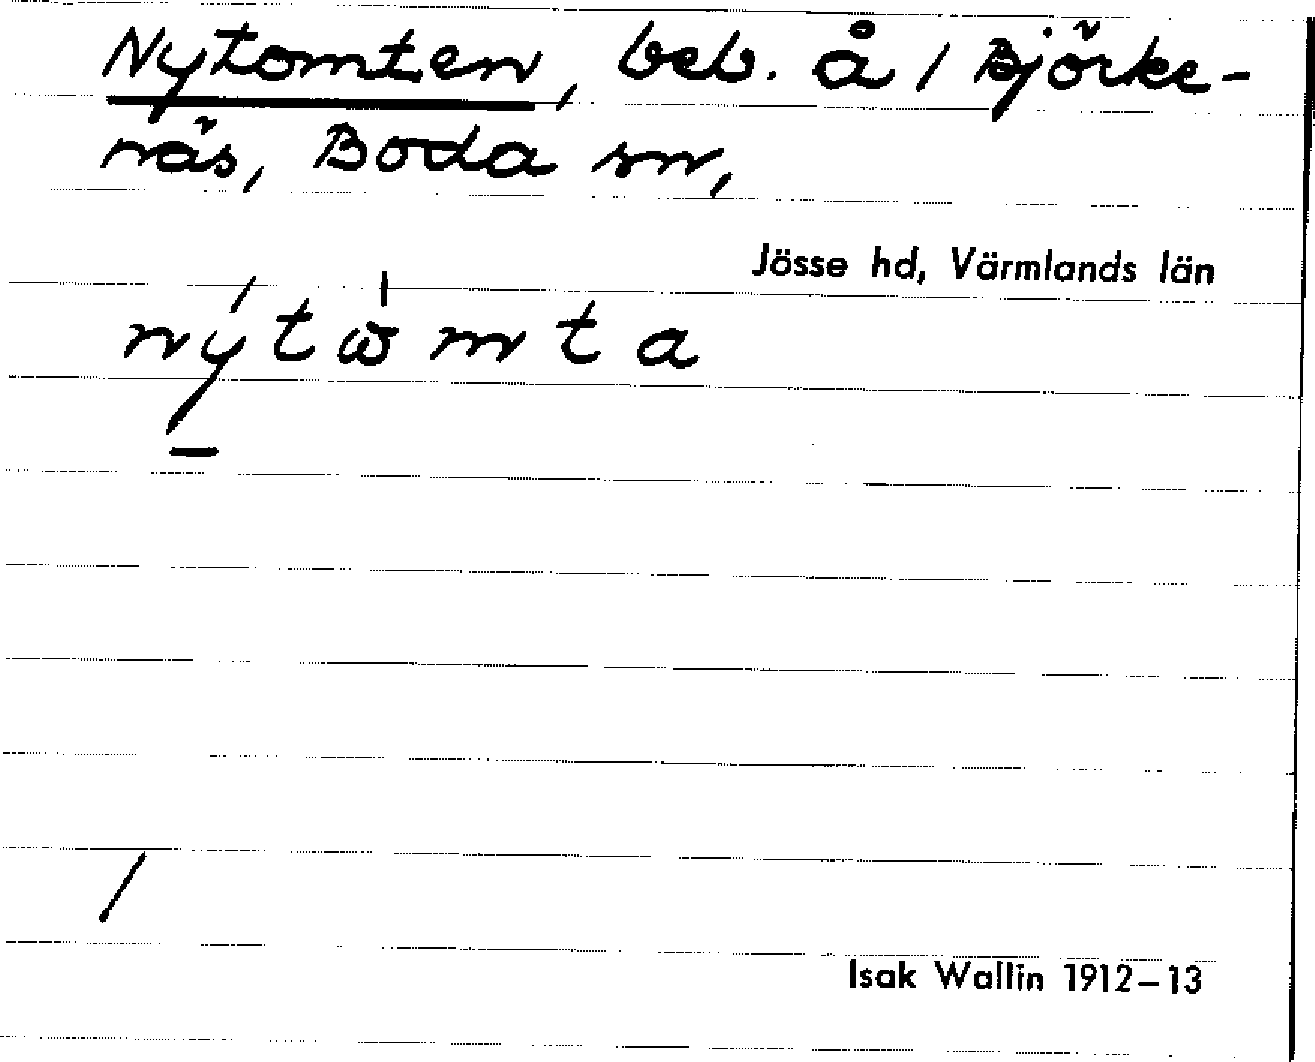 Nytomten, beb. å / Björke-
näs, Boda sn,
Jösse hd, Värmlands län
nýtωmta
/
Isak Wallin 1912–13